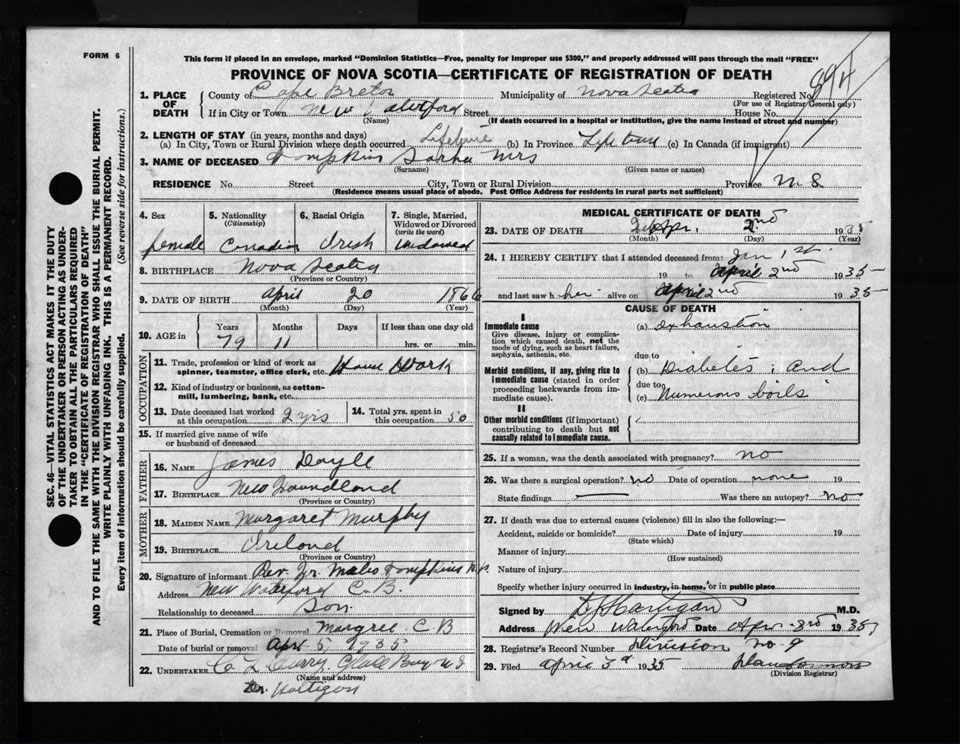 FORM 6
This form if placed in an envelope, marked "Dominion Statistics—Free, penalty for improper use $300," and properly addressed will pass through the mail "FREE"
PROVINCE OF NOVA SCOTIA—CERTIFICATE OF REGISTRATION OF DEATH
994
1. PLACE OF DEATH
County of Cape Breton Municipality of Nova Scotia Registered No.
(For use of Registrar General only)
If in City or Town New Waterford Street House No.
(Name) (If death occurred in a hospital or institution, give the name instead of street and number)
2. LENGTH OF STAY (in years, months and days)
(a) In City, Town or Rural Division where death occurred Lifetime (b) In Province Lifetime (c) In Canada (if immigrant)
3. NAME OF DECEASED Tompkins Sarha Mrs
(Surname) (Given name or names)
RESIDENCE No. Street City, Town or Rural Division Province N S
(Residence means usual place of abode. Post Office Address for residents in rural parts not sufficient)
4. Sex 5. Nationality 6. Racial Origin 7. Single, Married,
(Citizenship) Widowed or Divorced
(write the word)
female Canadian Irish Widowed
8. BIRTHPLACE Nova Scotia
(Province or Country)
9. DATE OF BIRTH April 20 1866
(Month) (Day) (Year)
10. AGE in Years Months Days If less than one day old
79 11 hrs. or min.
OCCUPATION
11. Trade, profession or kind of work as
spinner, teamster, office clerk, etc. House Work
12. Kind of industry or business, as cotton-
mill, lumbering, bank, etc.
13. Date deceased last worked at this occupation 2 yrs 14. Total yrs. spent in this occupation 50
15. If married give name of wife
or husband of deceased
FATHER
16. NAME James Doyle
17. BIRTHPLACE New Foundland
(Province or Country)
MOTHER
18. MAIDEN NAME Margaret Murphy
19. BIRTHPLACE Ireland
(Province or Country)
20. Signature of informant Rev. Dr. Miles Tompkins P.P.
Address New Waterford C.B.
Relationship to deceased Son
21. Place of Burial, Cremation or Removal Margree C.B
Date of burial or removal Apr 5, 1935
22. UNDERTAKER C L Curry Glace Bay N S
(Name and address)
Dr. Hartigan
MEDICAL CERTIFICATE OF DEATH
23. DATE OF DEATH Apr. 2nd 193
(Month) (Day) (Year)
24. I HEREBY CERTIFY that I attended deceased from: Jan 1st
19 to April 2nd 1935
and last saw her alive on April 2nd 1935
CAUSE OF DEATH
I
Immediate cause (a) Exhaustion
Give disease, injury or complica-
tion which caused death, not the
mode of dying, such as heart failure,
asphyxia, asthenia, etc.
due to
Morbid conditions, if any, giving rise to
immediate cause (stated in order
proceeding backwards from im-
mediate cause).
(b) Diabetes; and
due to
(c) Numerous boils
II
Other morbid conditions (if important)
contributing to death but not
causally related to immediate cause.
25. If a woman, was the death associated with pregnancy? no
26. Was there a surgical operation? no Date of operation none 19
State findings Was there an autopsy? no
27. If death was due to external causes (violence) fill in also the following:—
Accident, suicide or homicide? Date of injury 19
(State which)
Manner of injury
(How sustained)
Nature of injury
Specify whether injury occurred in industry, in home, or in public place
Signed by D J Hartigan M.D.
Address New Waterford Date Apr 3rd 1935
28. Registrar's Record Number Division No. 9
29. Filed April 3d 1935
(Division Registrar)
SEC. 46—VITAL STATISTICS ACT MAKES IT THE DUTY
OF THE UNDERTAKER OR PERSON ACTING AS UNDER-
TAKER TO OBTAIN ALL THE PARTICULARS REQUIRED
IN THE "CERTIFICATE OF REGISTRATION OF DEATH"
AND TO FILE THE SAME WITH THE DIVISION REGISTRAR WHO SHALL ISSUE THE BURIAL PERMIT.
WRITE PLAINLY WITH UNFADING INK. THIS IS A PERMANENT RECORD.
Every item of information should be carefully supplied. (See reverse side for instructions.)